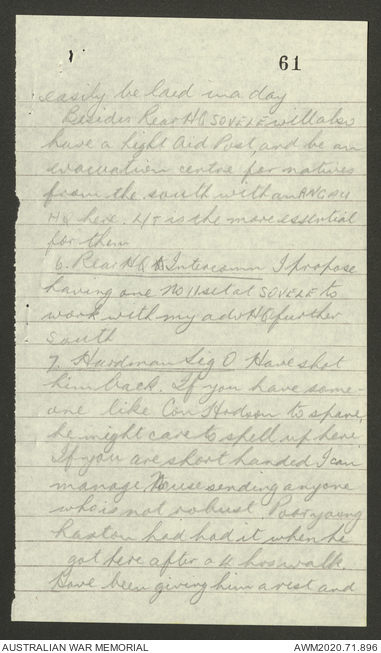 61
easily be laid in a day
Besides Rear HQ SOVELE will also
have a Light Aid Post and be an
evacuation centre for natives
from the south with an ANGAU
HQ here. L/T is the more essential
for them
6. Rear HQ Intercomn I propose
having one No 11 set at SOVELE to
work with my adv HQ further
south
7. Hardman Sig O Have shot
him back. If you have some-
one like Con Hodson to spare,
he might care to spell up here
If you are short handed I can
manage No use sending anyone
who is not robust Poor young
had had it when he
got here after a 4 hrs walk
Have been giving him a rest and
AUSTRALIAN WAR MEMORIAL
AWM2020.71.896